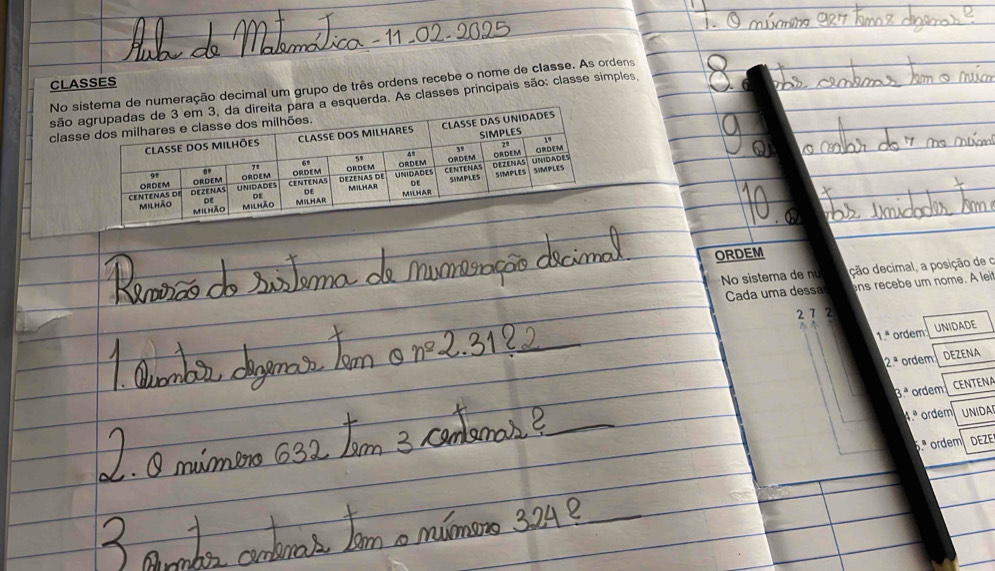 Aula de Matemática - 11-02-2025
CLASSES
No sistema de numeração decimal um grupo de três ordens recebe o nome de classe. As ordens
são agrupadas de 3 em 3, da direita para a esquerda. As classes principais são: classe simples,
classe dos milhares e classe dos milhões.
CLASSE DOS MILHÕES CLASSE DOS MILHARES CLASSE DAS UNIDADES SIMPLES
9ª ORDEM 8ª ORDEM 7ª ORDEM 6ª ORDEM 5ª ORDEM 4ª ORDEM 3ª ORDEM 2ª ORDEM 1ª ORDEM
CENTENAS DE MILHÃO DEZENAS DE MILHÃO UNIDADES DE MILHÃO CENTENAS DE MILHAR DEZENAS DE MILHAR UNIDADES DE MILHAR CENTENAS SIMPLES DEZENAS SIMPLES UNIDADES SIMPLES
Revisão do sistema de numeração decimal.
1. Quantas dezenas tem o nº 2.31?2
2. O número 632 tem 3 centenas?
3 Quantas centenas tem o número 324?
1. O número tem dezenas?
8. centenas tem o
9 o valor do 7 no
10. unidades tem o
ORDEM
No sistema de ção decimal, a posição de
Cada uma dessa ens recebe um nome. A
2 7 2
1.ª ordem: UNIDADE
2.ª ordem: DEZENA
3.ª ordem: CENTENA
4.ª ordem UNIDA
5.ª ordem DEZE